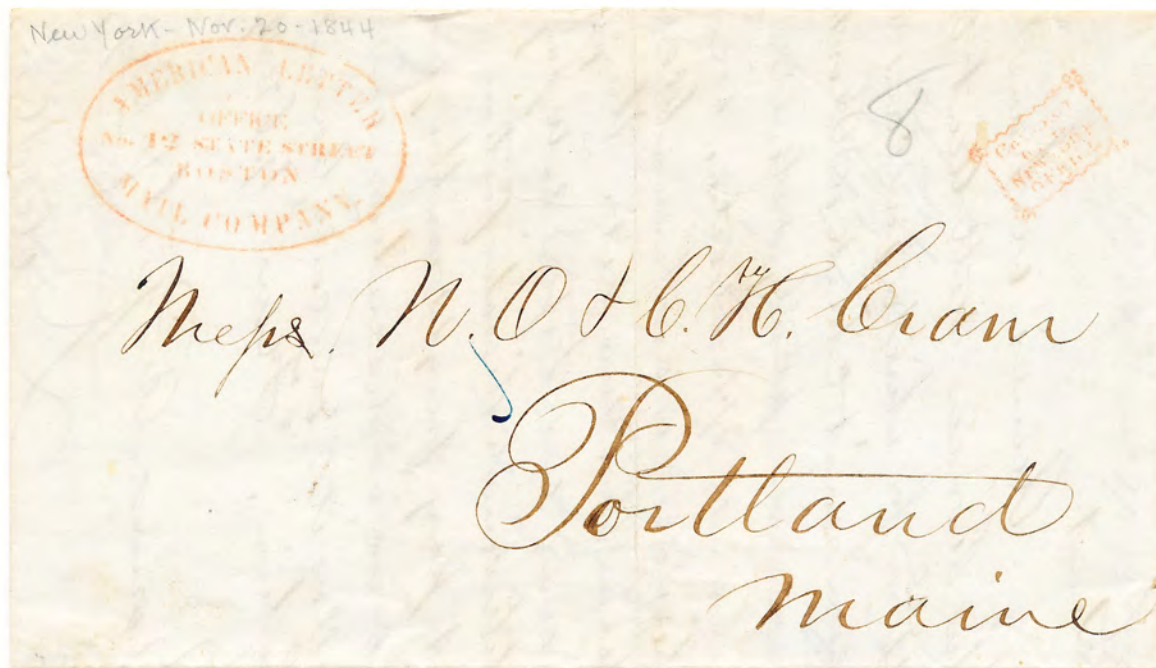 New York - Nov. 20 - 1844
AMERICAN LETTER
OFFICE
No. 12 STATE STREET
BOSTON
MAIL COMPANY.
8
Mess. N. O & C. H. Cram
Portland
Maine